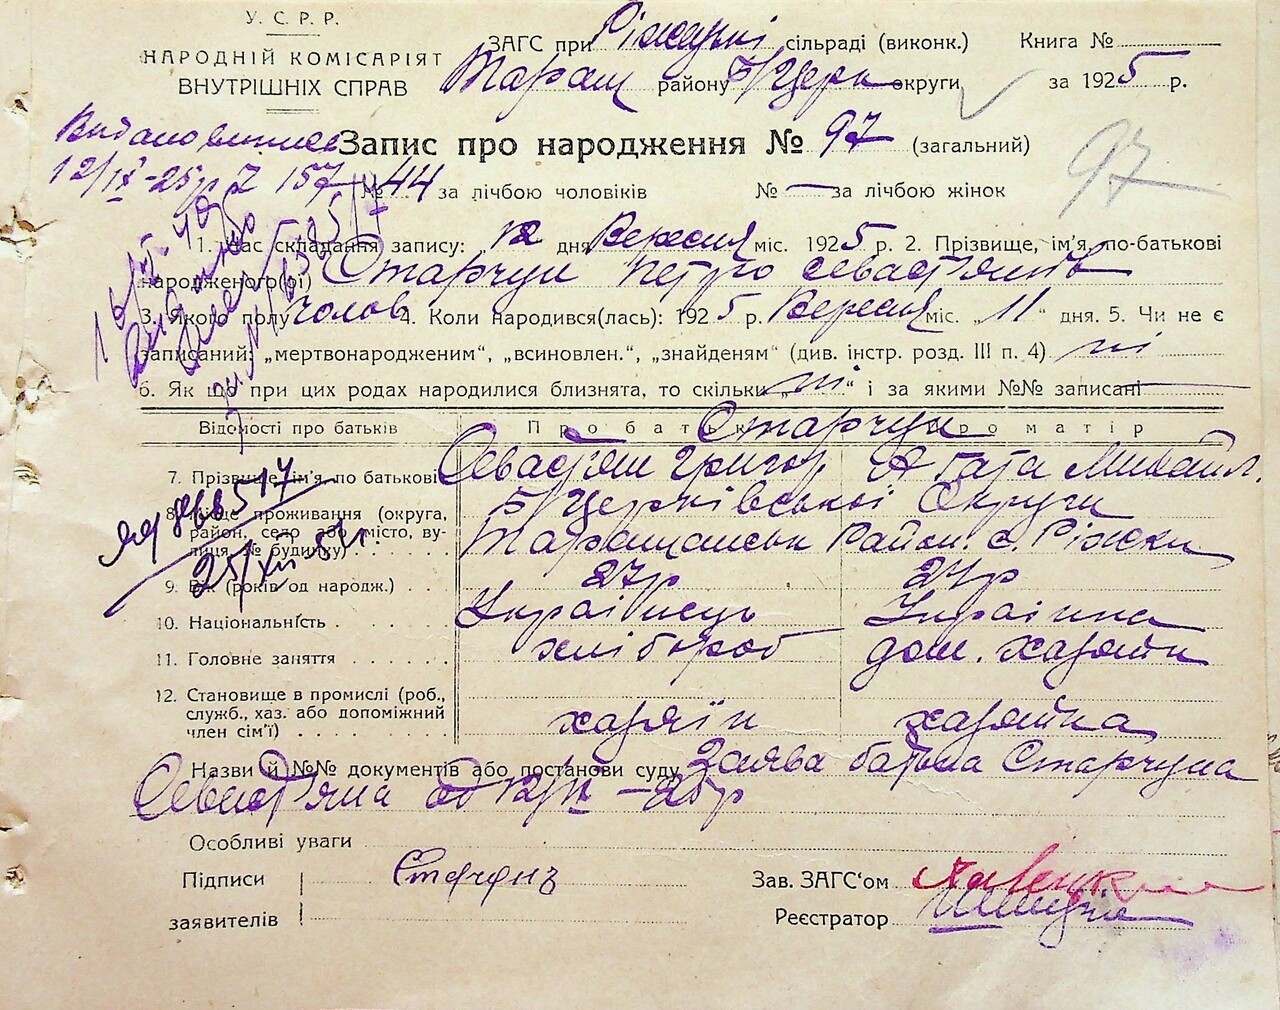 У. С. Р. Р.
НАРОДНІЙ КОМІСАРІЯТ
ВНУТРІШНІХ СПРАВ
ЗАГС при сільраді (виконк.) Книга №
Тараш району Б/Церк округи за 1925 р.
Видано виписк
12/IX-25р № 157
Запис про народження № 97 (загальний)
97
№ 44 за лічбою чоловіків № — за лічбою жінок
1. Час складання запису: „12" дня Вересня міс. 1925 р. 2. Прізвище, ім'я, по-батькові
народженого(ої) Старчун Петро Севаст'янів
3. Якого полу чолов. 4. Коли народився(лась): 1925 р. Вересня міс. „11" дня. 5. Чи не є
записаний: „мертвонародженим", „всиновлен.", „знайденям" (див. інстр. розд. III п. 4) ні
6. Як що при цих родах народилися близнята, то скільки „ні" і за якими №№ записані —
Відомості про батьків Про батька Про матір
Старчун
7. Прізвище, ім'я, по батькові Севаст'ян Григор. Агата Михайл.
8. Місце проживання (округа, район, село або місто, вулиця, № будинку) Б/Церківської Округи
Таращанськ Район. с. Ріжки
25/XII-51 г.
9. Вік (років од народж.) 27р 24р
10. Національність Українець Українка
11. Головне заняття хлібороб дом. хазяйка
12. Становище в промислі (роб.,
служб., хаз. або допоміжний
член сім'ї) хазяїн хазяйка
Назви й №№ документів або постанови суду Заява батька Старчуна
Севаст'яна од 12/IX-25р
Особливі уваги
Підписи
заявителів
Зав. ЗАГС'ом
Реєстратор